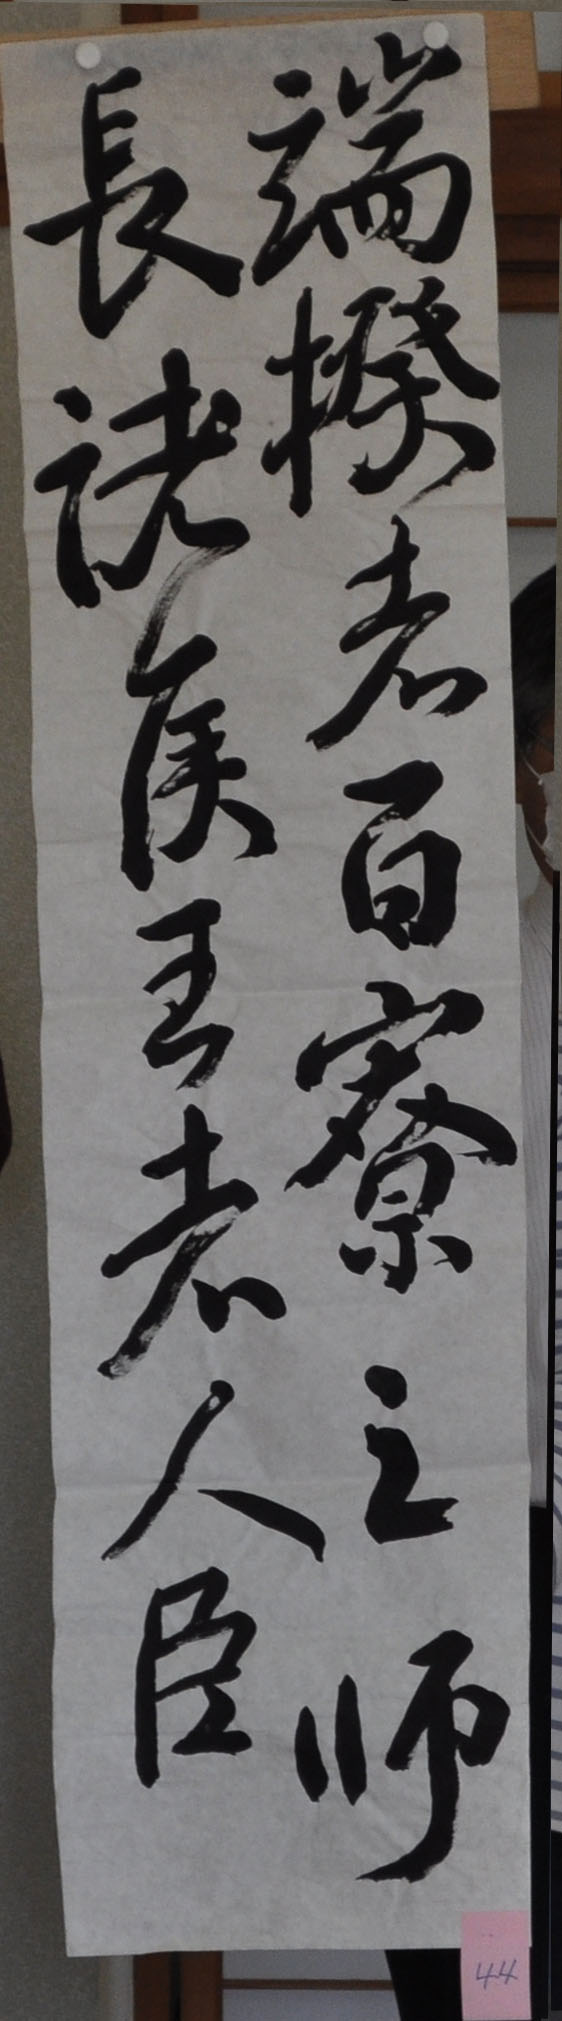 端揆者百寮之師
長諸侯王者人臣
44